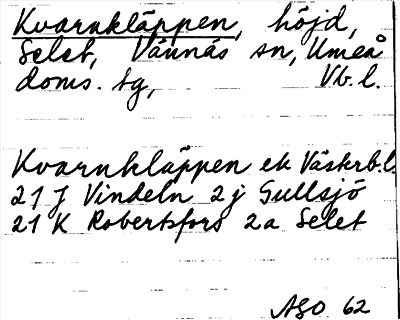 Kvarnkläppen, höjd,
Selet, Vännäs sn, Umeå
doms. tg, Vb. l.
Kvarnkläppen ek Västerb. l.
21 J Vindeln 2 j Gullsjö
21 K Robertsfors 2a Selet
ASO 62